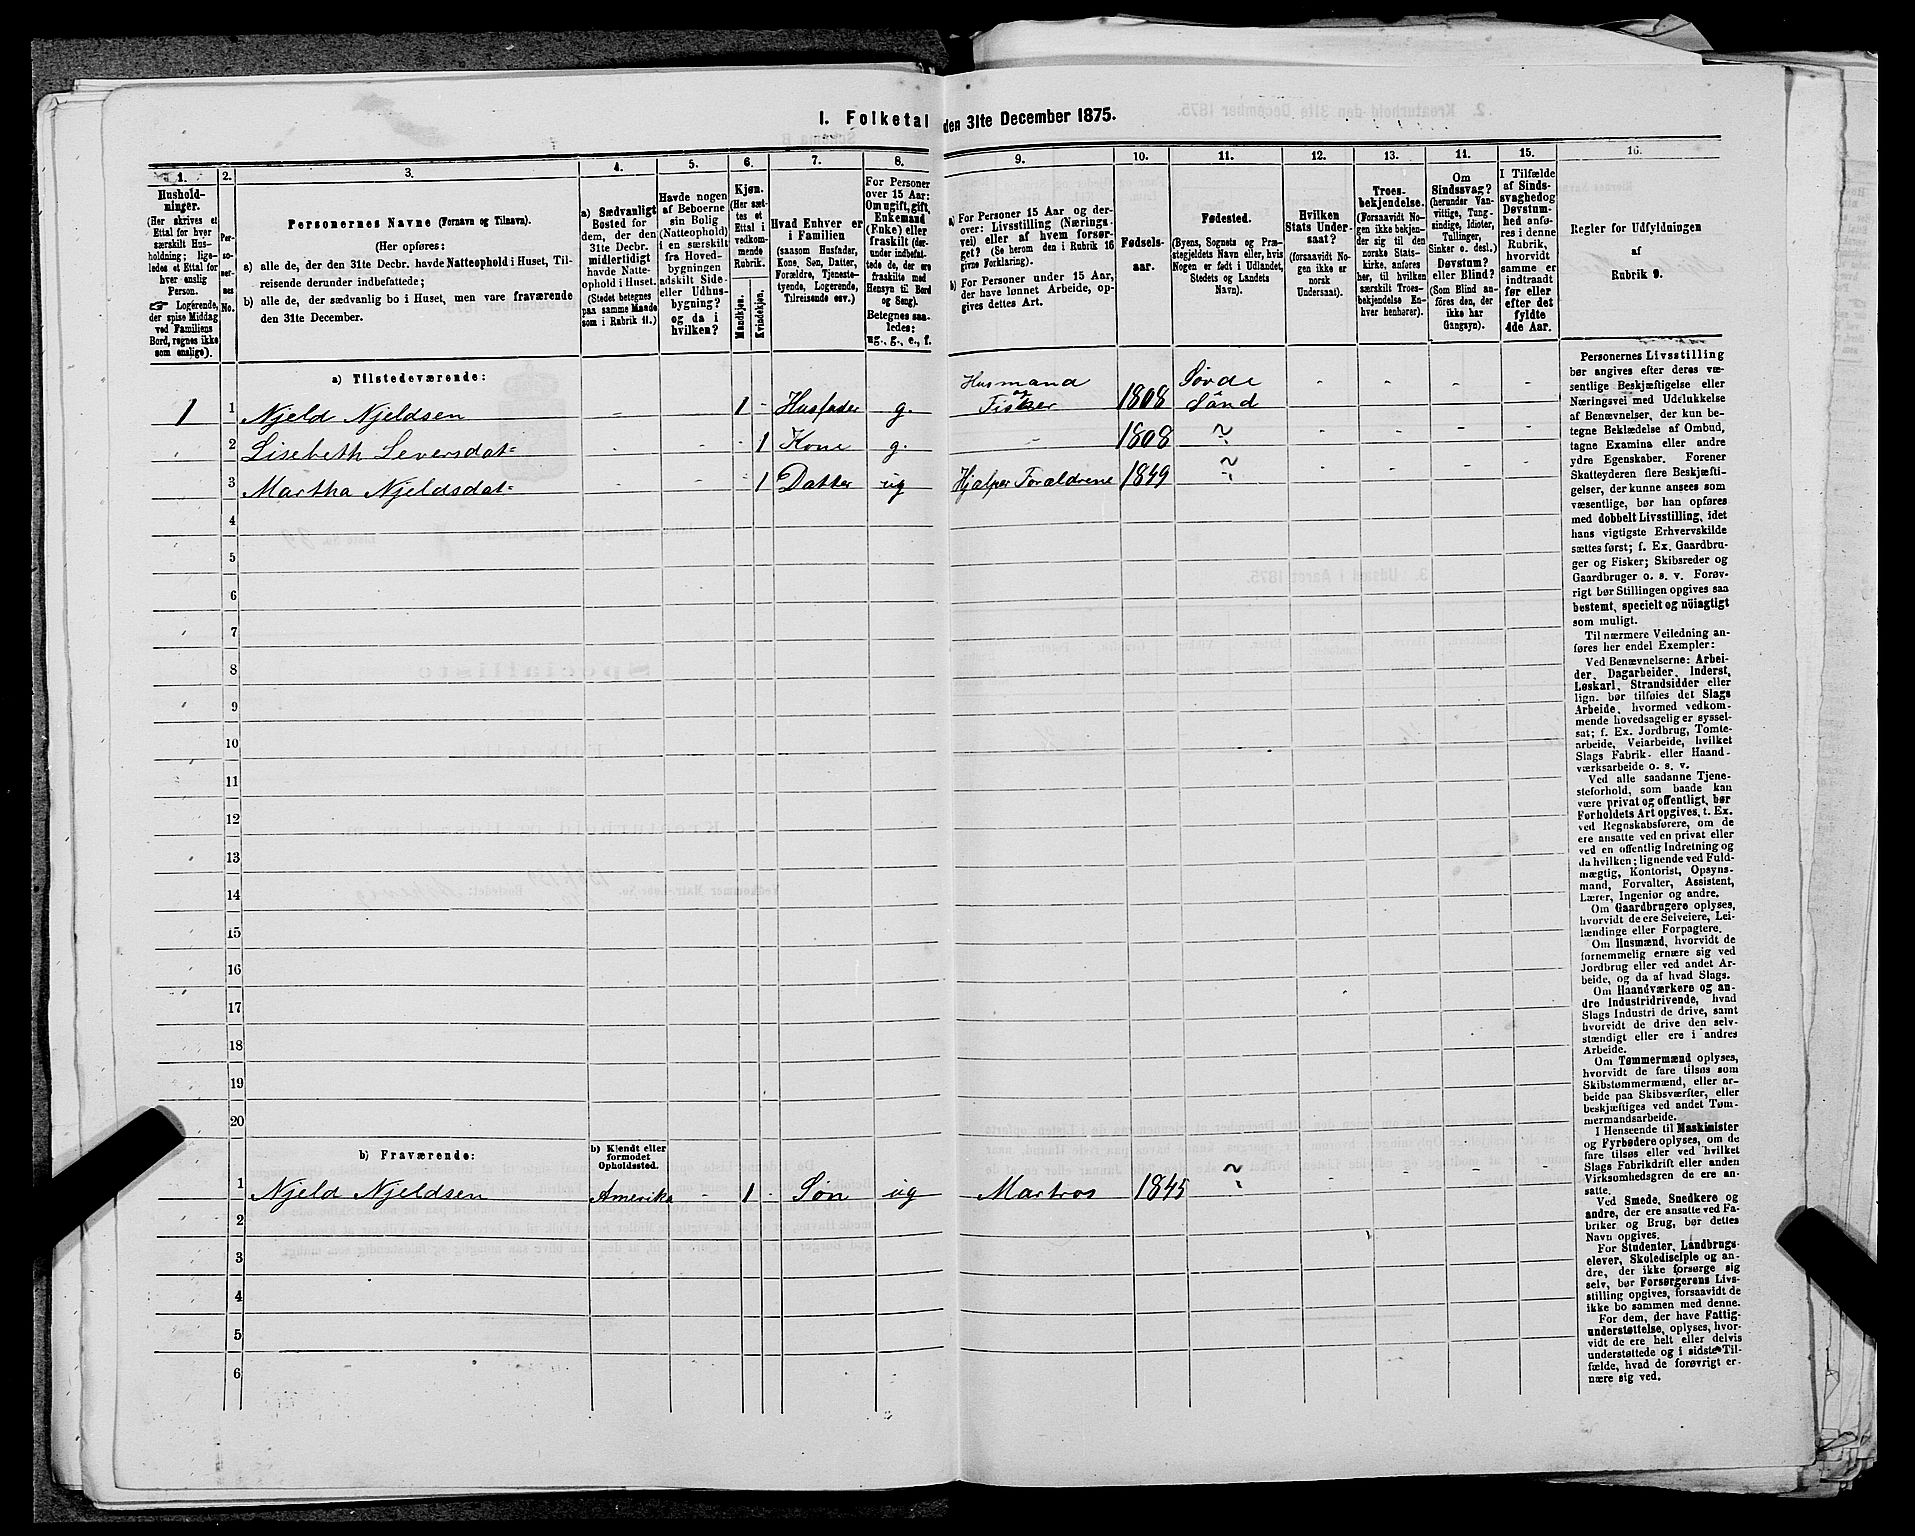 I. Folketal den 31te December 1875.
1. 2. 3. 4. 5. 6. 7. 8. 9. 10. 11. 12. 13. 14. 15. 16.
Hushold-
ninger.
(Her skrives et
Ettal for hver
særskilt Hus-
holdning; lige-
ledes et Ettal for
hver enslig
Person.
☞ Logerende,
der spise Middag
ved Familiens
Bord, regnes ikke
som enslige).
Per-
so-
ner-
nes
No.
Personernes Navne (Fornavn og Tilnavn).
(Her opføres:
a) alle de, der den 31te Decbr. havde Natteophold i Huset, Til-
reisende derunder indbefattede;
b) alle de, der sædvanlig bo i Huset, men vare fraværende
den 31te December.
a) Sædvanligt
Bosted for
dem, der den
31te Decbr.
midlertidigt
havde Natte-
ophold i Huset.
(Stedet betegnes
paa samme Maade
som i Rubrik 11.)
Havde nogen
af Beboerne
sin Bolig
(Natteophold)
i en særskilt
fra Hoved-
bygningen
adskilt Side-
eller Udhus-
bygning?
og da i
hvilken?
Kjøn.
(Her sæt-
tes et
Ettal i
vedkom-
mende
Rubrik.
Mandkjøn.
Kvindekjøn.
Hvad Enhver er
i Familien
(saasom Husfader,
Kone, Søn, Datter,
Forældre, Tjeneste-
tyende, Logerende,
Tilreisende osv.)
For Personer
over 15 Aar:
Om ugift, gift,
Enkemand
(Enke) eller
fraskilt (der-
under indbefat-
tede de, der ere
fraskilte med
Hensyn til Bord
og Seng).
Betegnes saa-
ledes:
ug., g., e., f.
a) For Personer 15 Aar og der-
over: Livsstilling (Nærings-
vei) eller af hvem forsør-
get? (Se herom den i Rubrik 16
givne Forklaring).
b) For Personer under 15 Aar,
der have lønnet Arbeide, op-
gives dettes Art.
Fødsels-
aar.
Fødested.
(Byens, Sognets og Præ-
stegjeldets Navn eller, hvis
Nogen er født i Udlandet,
Stedets og Landets
Navn).
Hvilken
Stats Under-
saat?
(forsaavidt No-
gen ikke er
norsk
Undersaat).
Troes-
bekjendelse.
(Forsaavidt No-
gen ikke bekjen-
der sig til den
norske Stats-
kirke, anføres
her, til hvilken
særskilt Troes-
bekjendelse En-
hver henhører).
Om
Sindssvag?
(herunder Van-
vittige, Tung-
sindige, Idioter,
Tullinger,
Sinker o. desl.)
Døvstum?
eller Blind?
(Som Blind an-
føres den, der
ikke har
Gangsyn).
I Tilfælde
af Sinds-
svaghed og
Døvstum-
hed anfø-
res i denne
Rubrik,
hvorvidt
samme er
indtraadt
før eller
efter det
fyldte
4de Aar.
Regler for Udfyldningen
af
Rubrik 9.
a) Tilstedeværende:
1 1 Njeld Njeldsen - - 1 - Husfader g. Husmand og Fisker 1808 Søvde Sånd - - - -
2 Lisebeth Seversdat= - - - 1 Kone g. - 1808 ~ - - - -
3 Martha Njeldsdat= - - - 1 Datter ug Hjælper Forældrene 1849 ~ - - - -
4
5
6
7
8
9
10
11
12
13
14
15
16
17
18
19
20
b) Fraværende:
b) Kjendt eller
formodet
Opholdssted.
1 Njeld Njeldsen Amerika - 1 - Søn ug Martros 1845 ~ - - - -
2
3
4
5
6
Personernes Livsstilling
bør angives efter deres væ-
sentlige Beskjæftigelse eller
Næringsvei med Udelukkelse
af Benævnelser, der kun be-
tegne Beklædelse af Ombud,
tagne Examina eller andre
ydre Egenskaber. Forener
Skatteyderen flere Beskjæfti-
gelser, der kunne ansees som
væsentlige, bør han opføres
med dobbelt Livsstilling, idet
hans vigtigste Erhvervskilde
sættes først; f. Ex. Gaardbru-
ger og Fisker; Skibsreder og
Gaardbruger o. s. v. Forøv-
rigt bør Stillingen opgives saa
bestemt, specielt og nöiagtigt
som muligt.
Til nærmere Veiledning an-
føres her endel Exempler:
Ved Benævnelserne: Arbei-
der, Dagarbeider, Inderst,
Løskarl, Strandsidder eller
lign. bør tilføies det Slags
Arbeide, hvormed vedkom-
mende hovedsagelig er syssel-
sat; f. Ex. Jordbrug, Tomte-
arbeide, Veiarbeide, hvilket
Slags Fabrik- eller Haand-
værksarbeide o. s. v.
Ved alle saadanne Tjene-
steforhold, som baade kan
være privat og offentligt, bør
Forholdets Art opgives, t. Ex.
ved Regnskabsførere, om de
ere ansatte ved en privat eller
ved en offentlig Indretning og
da hvilken; lignende ved Fuld-
mægtig, Kontorist, Opsyns-
mand, Forvalter, Assistent,
Lærer, Ingeniør og andre.
Om Gaardbrugere oplyses,
hvorvidt de ere Selveiere, Lei-
lændinge eller Forpagtere.
Om Husmænd, hvorvidt de
fornemmelig ernære sig ved
Jordbrug eller ved andet Ar-
beide, og da af hvad Slags.
Om Haandværkere og an-
dre Industridrivende, hvad
Slags Industri de drive, samt
hvorvidt de drive den selv-
stændigt eller ere i andres
Arbeide.
Om Tømmermænd oplyses,
hvorvidt de fare tilsøs som
Skibstømmermænd, eller ar-
beide paa Skibsværfter, eller
beskjæftiges ved andet Tøm-
mermandsarbeide.
I Henseende til Maskinister
og Fyrbødere oplyses, om de
fare tilsøs eller ved hvilket
Slags Fabrikdrift eller anden
Virksomhedsgren de ere an-
satte.
Ved Smede, Snedkere og
andre, der ere ansatte ved Fa-
briker og Brug, bør dettes
Navn opgives.
For Studenter, Landbrugs-
elever, Skoledisciple og an-
dre, der ikke forsørge sig
selv, bør Forsørgerens Livs-
stilling opgives, forsaavidt de
ikke bo sammen med denne.
For dem, der have Fattig-
understøttelse, oplyses, hvor-
vidt de ere helt eller delvis
understøttede og i sidste Til-
fælde, hvad de forøvrigt er-
nære sig ved.